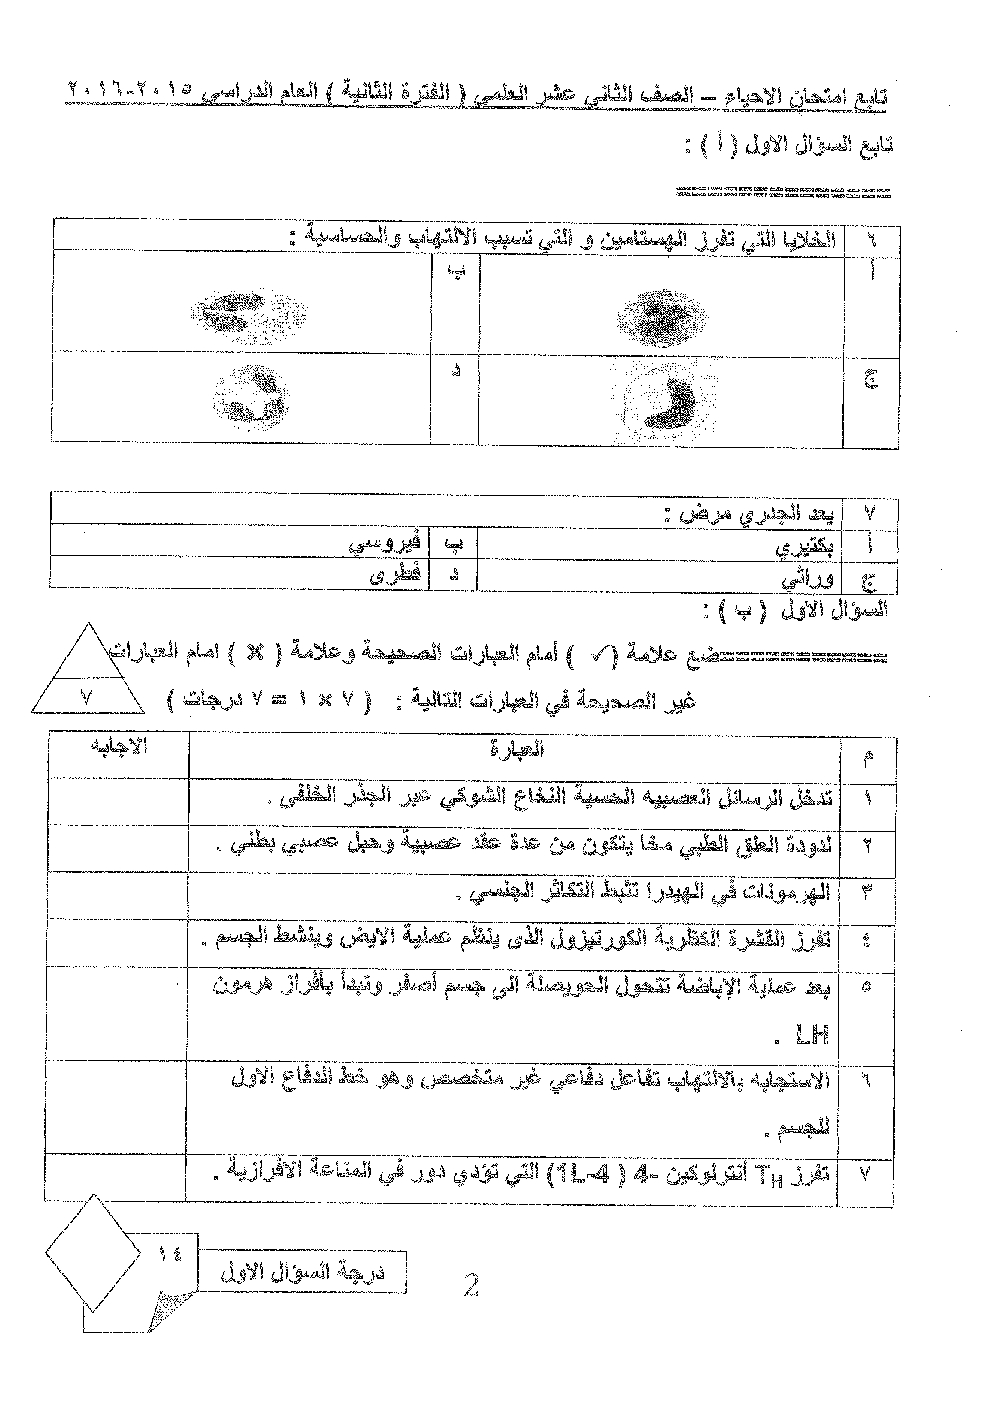 تابع امتحان الاحياء – الصف الثاني عشر العلمي ( الفترة الثانية ) العام الدراسي ٢٠١٥-٢٠١٦
تابع السؤال الاول ( أ ) :
٦ الخلايا التي تفرز الهستامين و التي تسبب الالتهاب والحساسية :
أ ب
ج د
٧ يعد الجدري مرض :
أ بكتيري ب فيروسي
ج وراثي د فطرى
السؤال الاول ( ب ) :
ضع علامة ( ✓ ) أمام العبارات الصحيحة وعلامة ( x ) امام العبارات
غير الصحيحة في العبارات التالية : ( ٧ × ١ = ٧ درجات )
٧
م العبارة الاجابه
١ تدخل الرسائل العصبيه الحسية النخاع الشوكي عبر الجذر الخلفى .
٢ لدودة العلق الطبي مخا يتكون من عدة عقد عصبية وحبل عصبي بطني .
٣ الهرمونات في الهيدرا تثبط التكاثر الجنسي .
٤ تفرز القشرة الكظرية الكورتيزول الذى ينظم عملية الايض وينشط الجسم .
٥ بعد عملية الإباضة تتحول الحويصلة الى جسم أصفر وتبدأ بافراز هرمون
LH .
٦ الاستجابه بالالتهاب تفاعل دفاعي غير متخصص وهو خط الدفاع الاول
للجسم .
٧ تفرز TH أنترلوكين -4 ( 1L-4) التي تؤدي دور في المناعة الافرازية .
١٤
درجة السؤال الاول
2